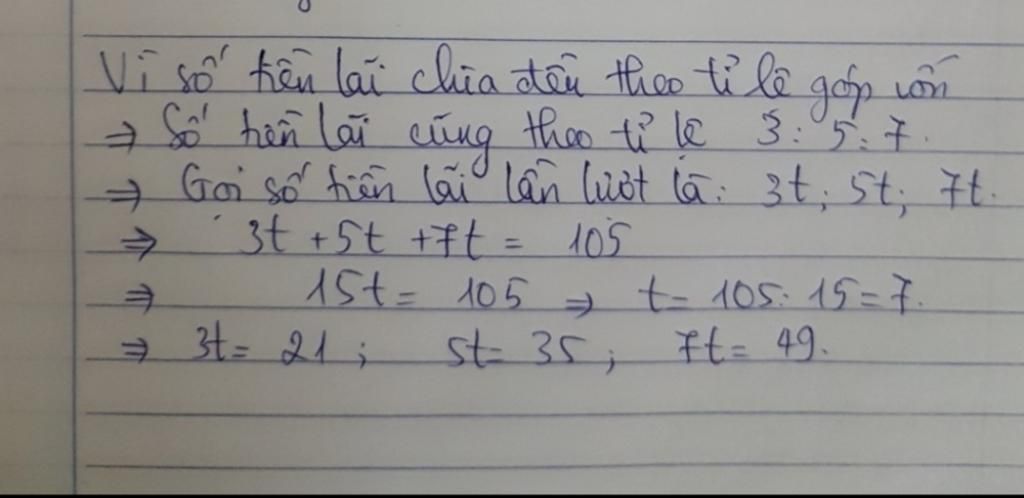 Vì số tiền lãi chia đều theo tỉ lệ góp vốn
⇒ Số tiền lãi cũng theo tỉ lệ 3 : 5 : 7.
⇒ Gọi số tiền lãi lần lượt là: 3t; 5t; 7t.
⇒ 3t + 5t + 7t = 105
⇒ 15t = 105 ⇒ t = 105 : 15 = 7.
⇒ 3t = 21 ; 5t = 35 ; 7t = 49.